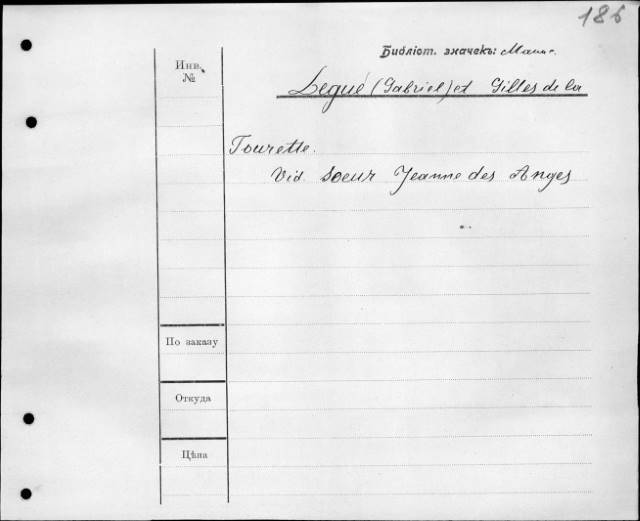 186
Библіот. значекъ:
Инв.
№
Legué (Gabriel) et Gilles de la
Tourette.
Vid. Soeur Jeanne des Anges
По заказу
Откуда
Цѣна